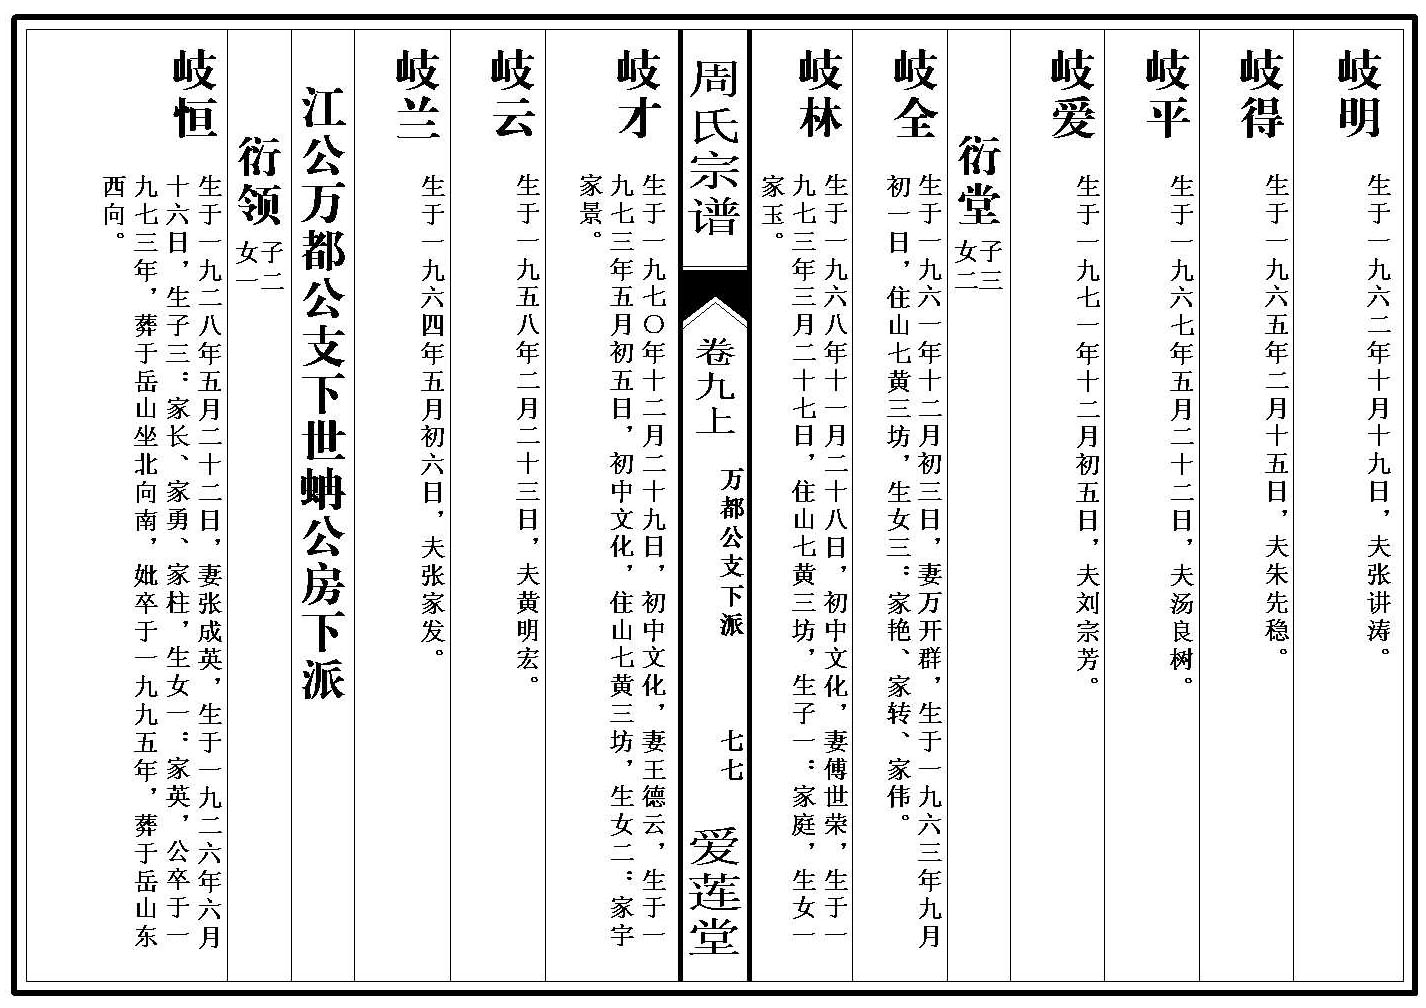 岐明
生于一九六二年十月十九日，夫张讲涛。
岐得
生于一九六五年二月十五日，夫朱先稳。
岐平
生于一九六七年五月二十二日，夫汤良树。
岐爱
生于一九七一年十二月初五日，夫刘宗芳。
衍堂
子三
女二
岐全
生于一九六一年十二月初三日，妻万开群，生于一九六三年九月
初一日，住山七黄三坊，生女三：家艳、家转、家伟。
岐林
生于一九六八年十一月二十八日，初中文化，妻傅世荣，生于一
九七三年三月二十七日，住山七黄三坊，生子一：家庭，生女一
家玉。
周氏宗谱
卷九上
万都公支下派
七七
爱莲堂
岐才
生于一九七〇年十二月二十九日，初中文化，妻王德云，生于一
九七三年五月初五日，初中文化，住山七黄三坊，生女二：家宇
家景。
岐云
生于一九五八年二月二十三日，夫黄明宏。
岐兰
生于一九六四年五月初六日，夫张家发。
江公万都公支下世蚺公房下派
衍领
子二
女一
岐恒
生于一九二八年五月二十二日，妻张成英，生于一九二六年六月
十六日，生子三：家长、家勇、家柱，生女一：家英，公卒于一
九七三年，葬于岳山坐北向南，妣卒于一九九五年，葬于岳山东
西向。